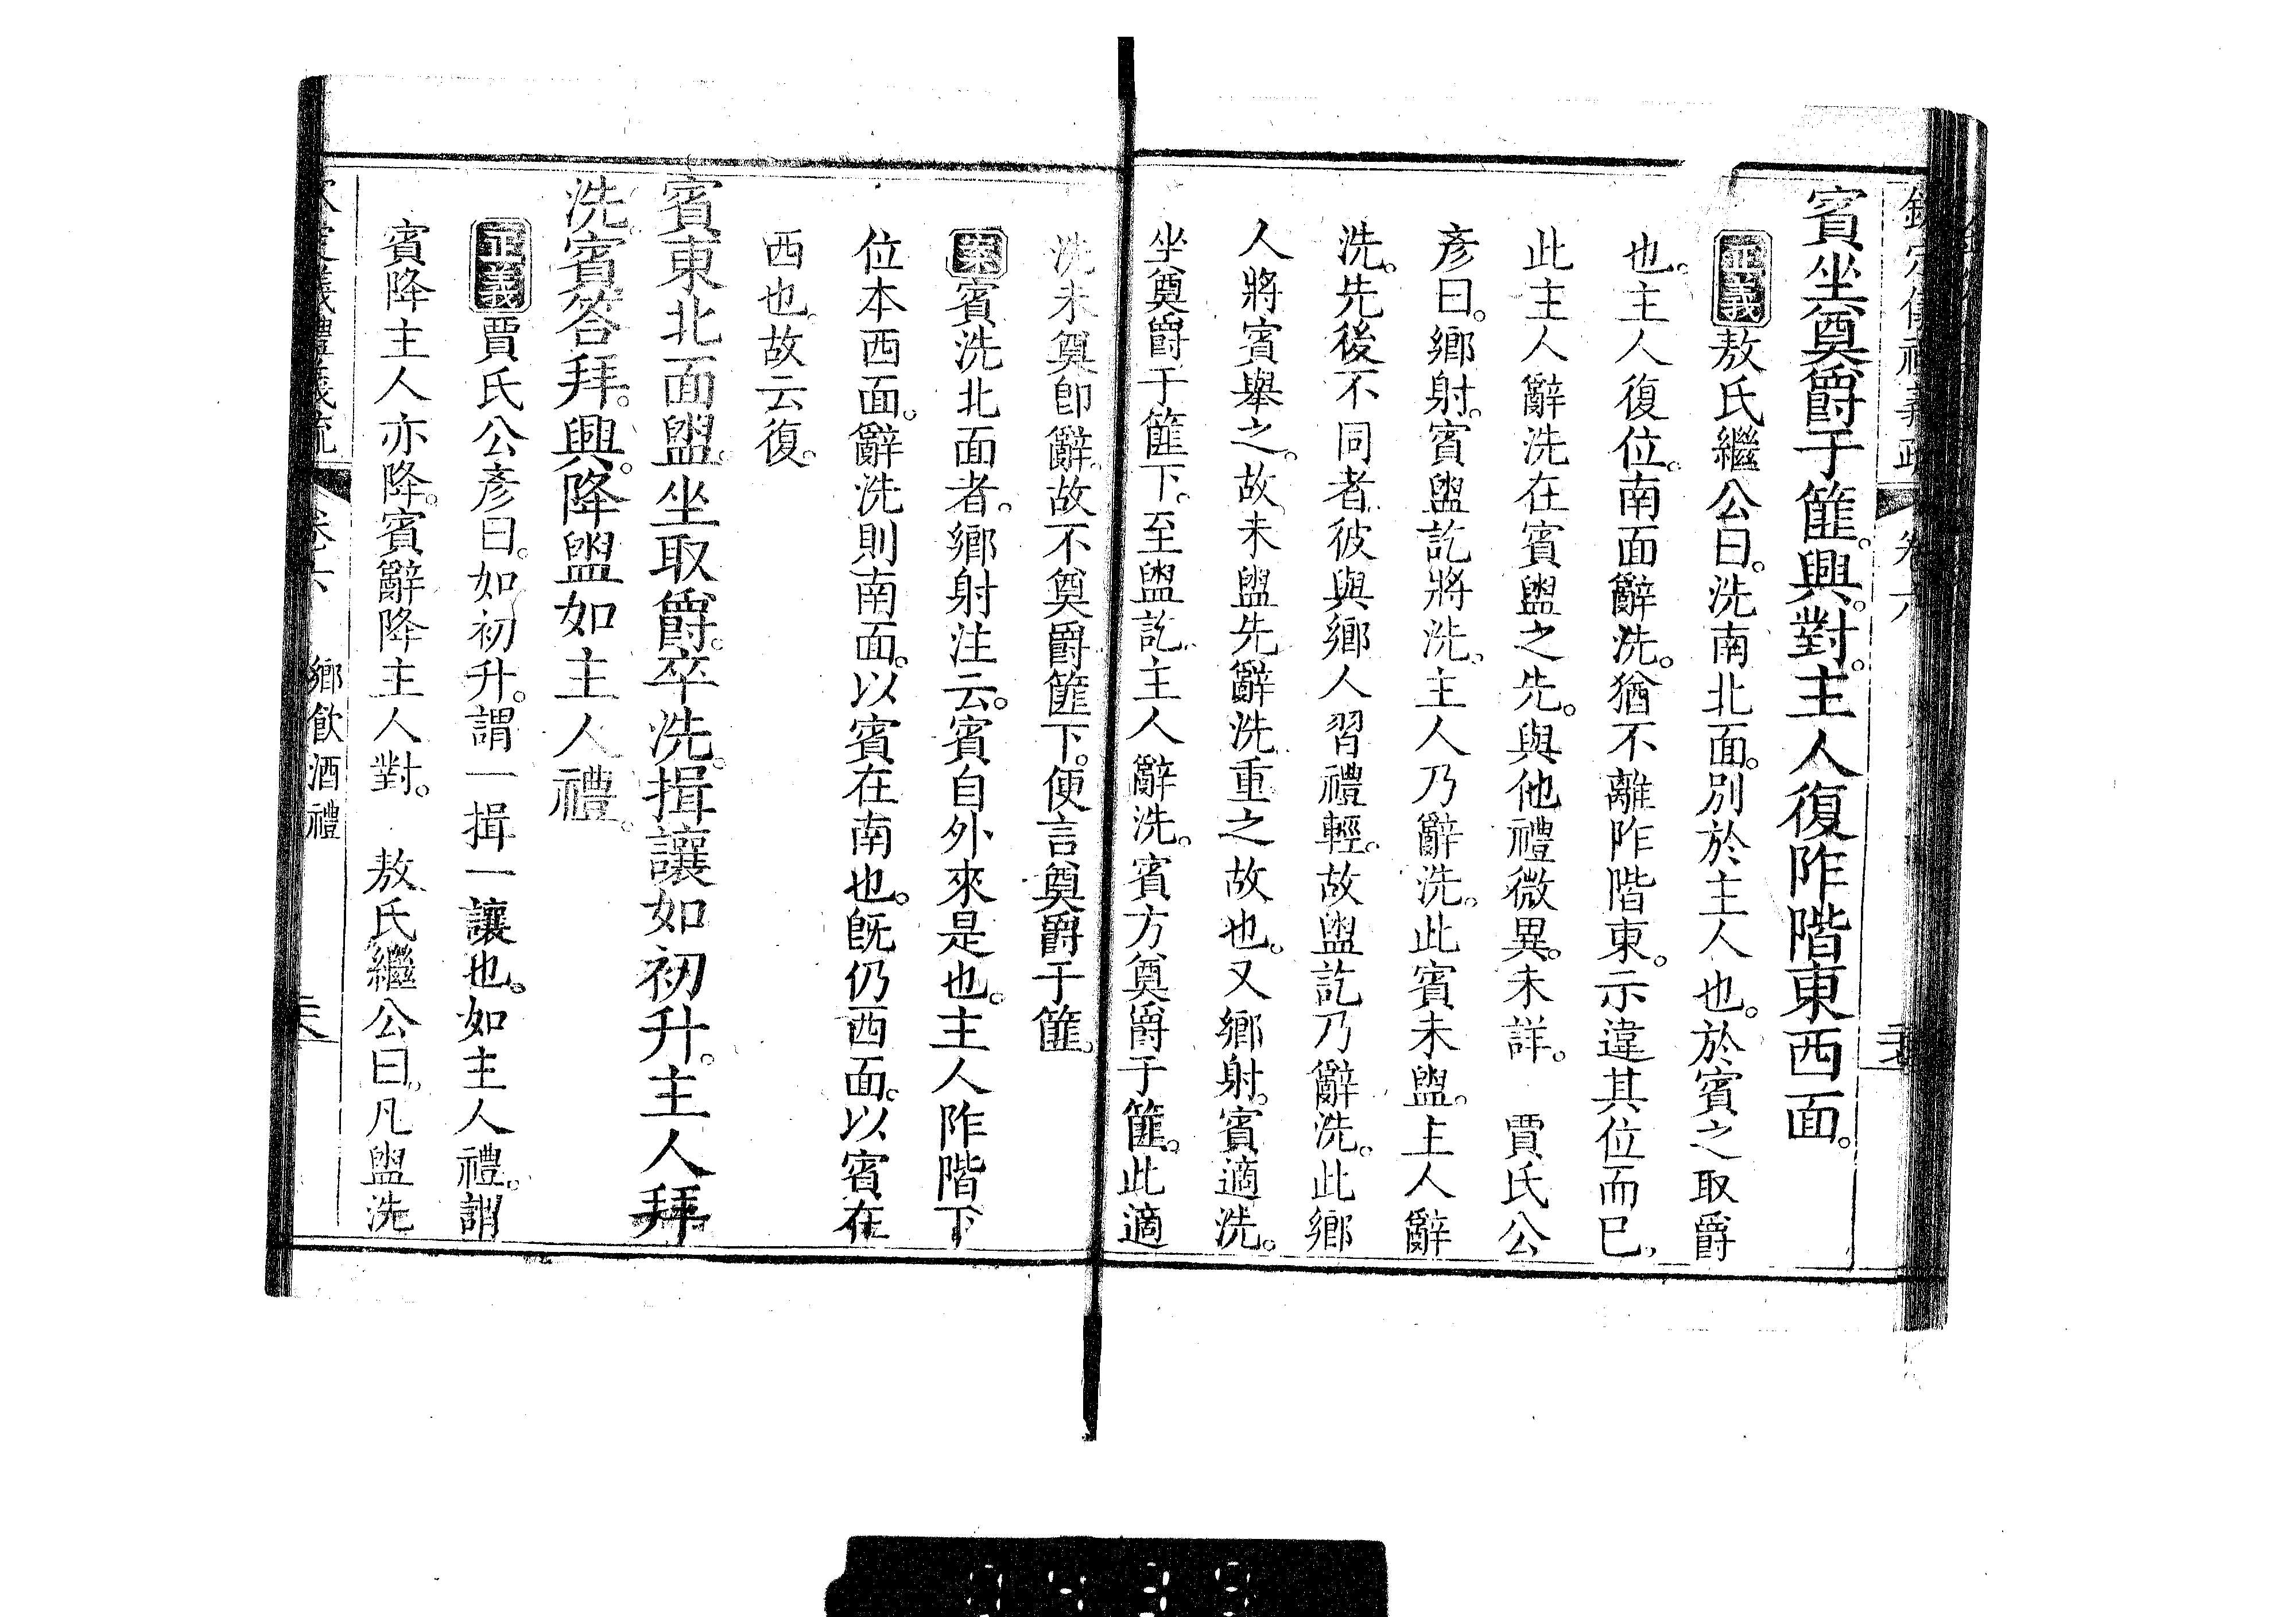 賓坐奠爵于篚。興對。主人復阼階東西面。
正義敖氏繼公曰。洗南北面。別於主人也。於賓之取爵
也。主人復位。南面辭洗。猶不離阼階東。示違其位而已。
此主人辭洗在賓盥之先。與他禮微異。未詳。　賈氏公
彥曰。鄉射。賓盥訖將洗。主人乃辭洗。此賓未盥。主人辭
洗。先後不同者。彼與鄉人習禮輕。故盥訖乃辭洗。此鄉
人將賓舉之。故未盥先辭洗。重之故也。又鄉射。賓適洗。
坐奠爵于篚下。至盥訖。主人辭洗。賓方奠爵于篚。此適
洗未奠卽辭。故不奠爵篚下。便言奠爵于篚。
案賓洗北面者。鄉射注云。賓自外來是也。主人阼階下
位本西面。辭洗則南面。以賓在南也。旣仍西面。以賓在
西也。故云復。
賓東北面盥。坐取爵。卒洗。揖讓如初升。主人拜
洗。賓荅拜。興。降盥如主人禮。
正義賈氏公彥曰。如初升。謂一揖一讓也。如主人禮。謂
賓降主人亦降。賓辭降主人對。　敖氏繼公曰。凡盥洗
鄉飲酒禮